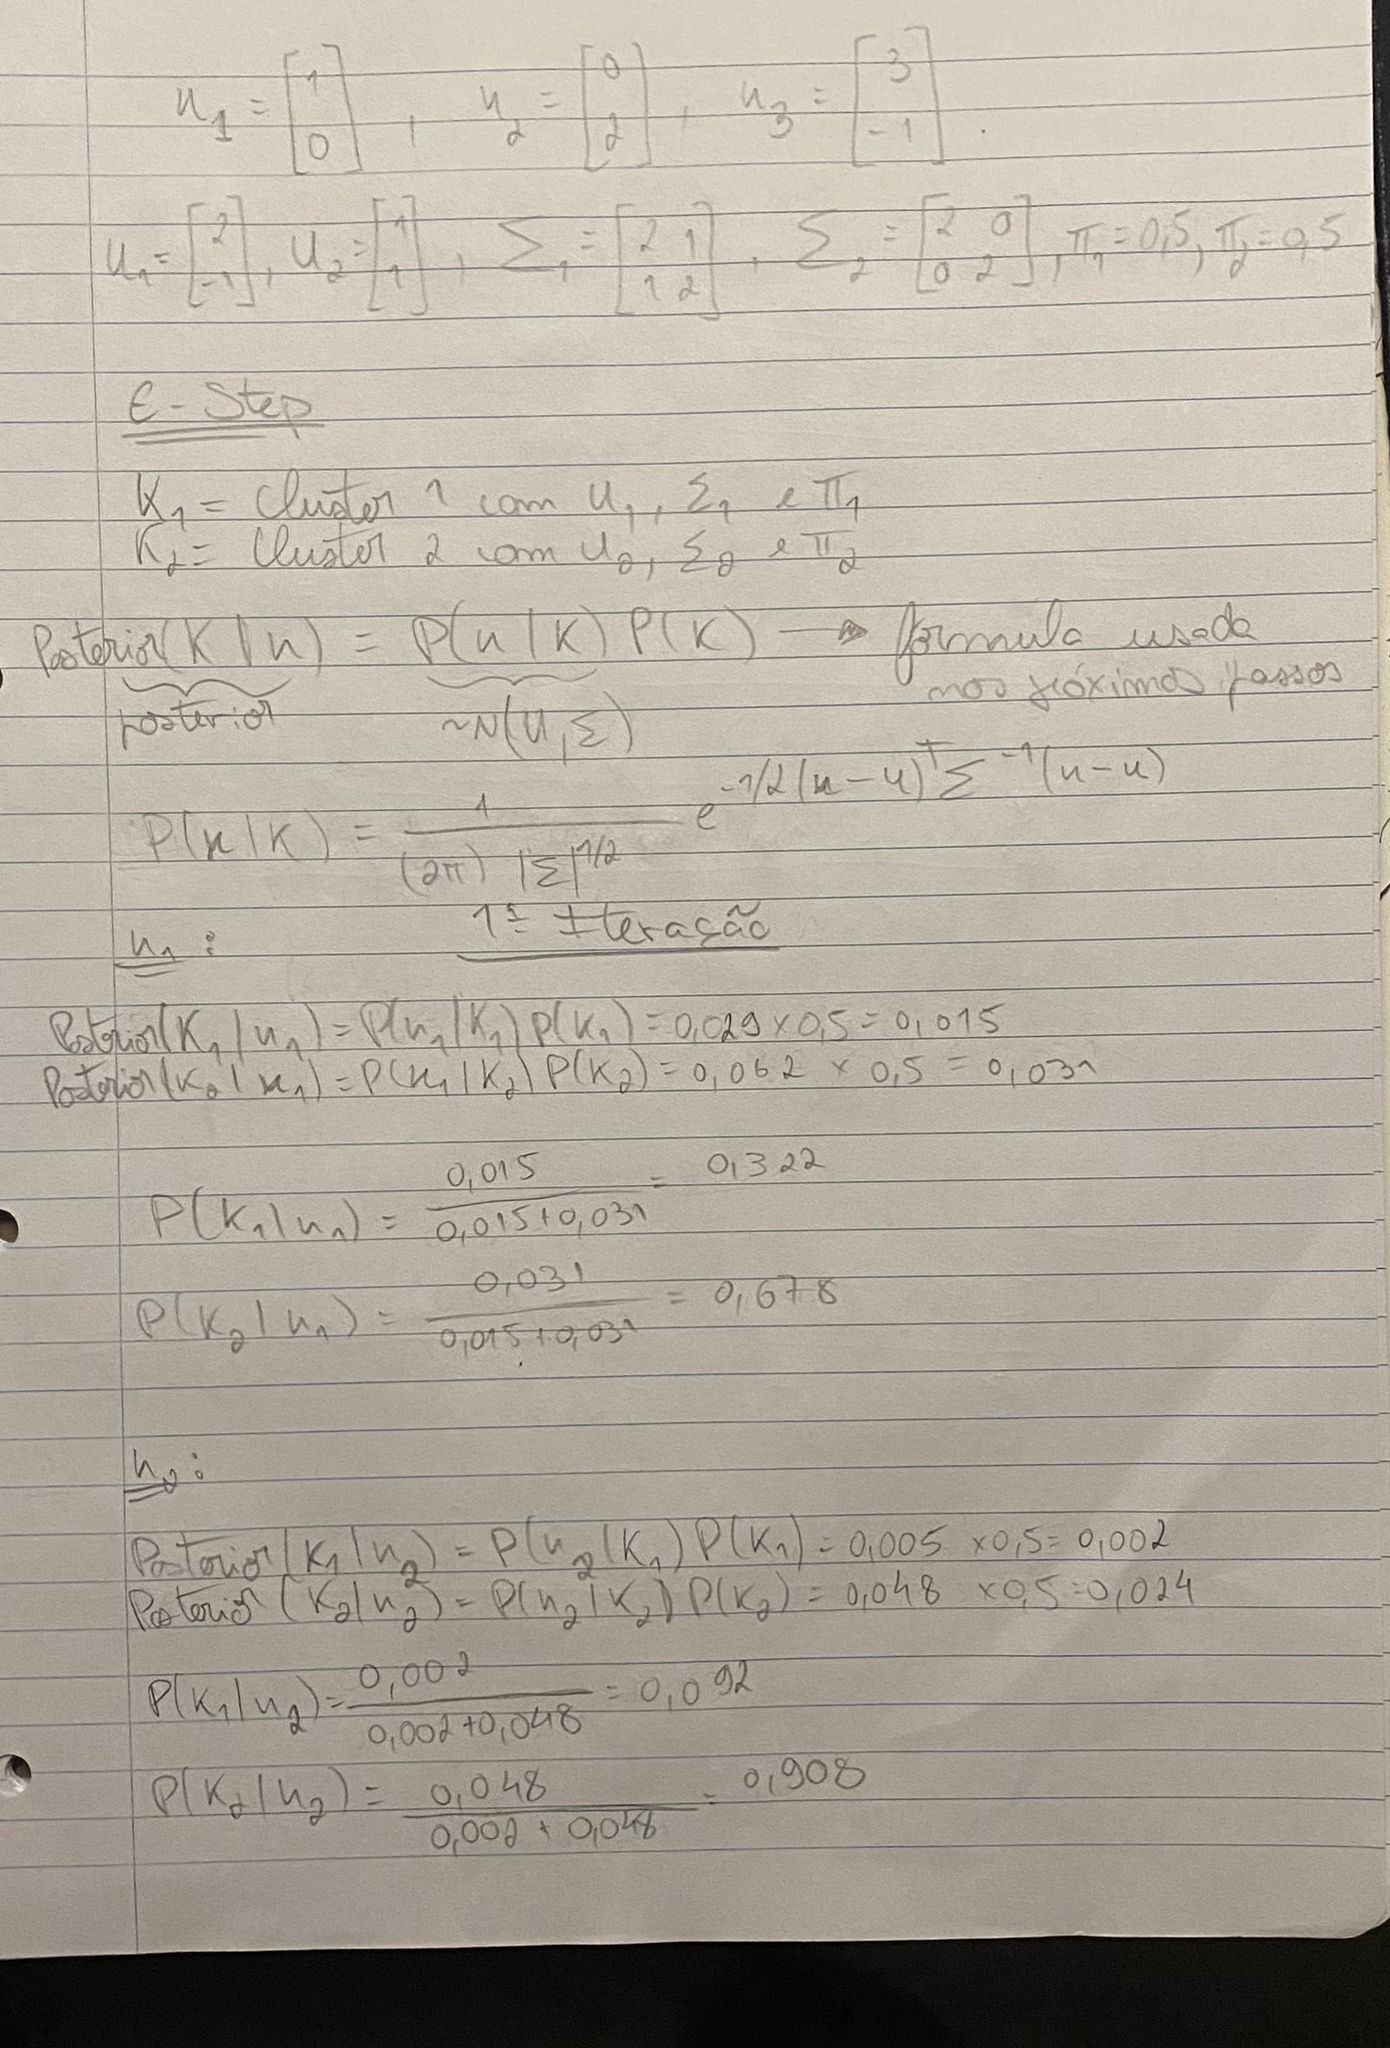 x₁ = [1 0], x₂ = [0 2], x₃ = [3 -1].
u₁ = [2 -1], u₂ = [1 1], Σ₁ = [2 1 1 2], Σ₂ = [2 0 0 2], π₁ = 0,5, π₂ = 0,5
E-Step
K₁ = Cluster 1 com u₁, Σ₁ e π₁
K₂ = Cluster 2 com u₂, Σ₂ e π₂
Posterior(K|x) = P(x|K) P(K) → fórmula usada
nos próximos passos
posterior ~N(u,Σ)
P(x|K) = 1/((2π) |Σ|^1/2) e^-1/2(x-u)^T Σ^-1(x-u)
x₁: 1ª Iteração
Posterior(K₁|x₁) = P(x₁|K₁) P(K₁) = 0,029 × 0,5 = 0,015
Posterior(K₂|x₁) = P(x₁|K₂) P(K₂) = 0,062 × 0,5 = 0,031
P(K₁|x₁) = 0,015/(0,015+0,031) = 0,322
P(K₂|x₁) = 0,031/(0,015+0,031) = 0,678
x₂:
Posterior(K₁|x₂) = P(x₂|K₁) P(K₁) = 0,005 × 0,5 = 0,002
Posterior(K₂|x₂) = P(x₂|K₂) P(K₂) = 0,048 × 0,5 = 0,024
P(K₁|x₂) = 0,002/(0,002+0,048) = 0,092
P(K₂|x₂) = 0,048/(0,002+0,048) = 0,908